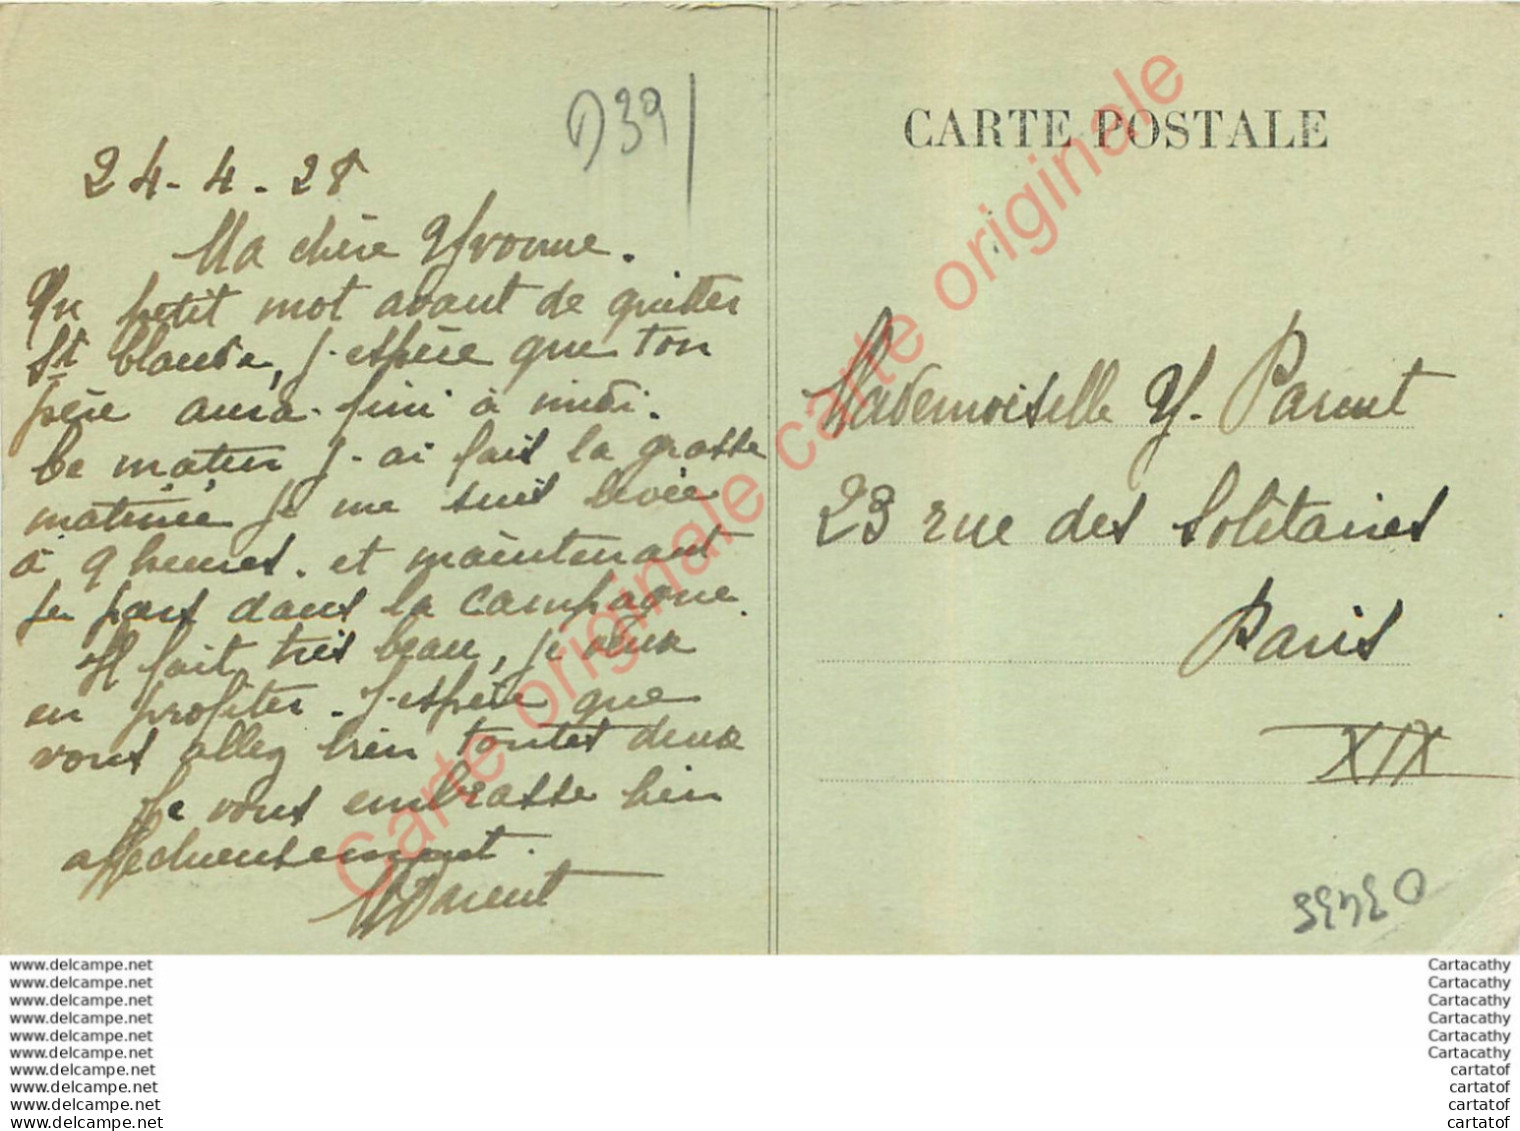 D39
24-4-28
Ma chère Yvonne.
Un petit mot avant de quitter
St Claude, j-espère que ton
père aura fini à midi.
Ce matin j-ai fait la grasse
matinée je me suis levée
à 9 heures. et maintenant
je pars dans la campagne.
Il fait très beau, je veux
en profiter. J-espère que
vous allez bien toutes deux
Je vous embrasse bien
affectueusement.
Parent
CARTE POSTALE
Mademoiselle Y. Parent
23 rue des Solitaires
Paris
XIX
Carte originale carte originale
www.delcampe.net
www.delcampe.net
www.delcampe.net
www.delcampe.net
www.delcampe.net
www.delcampe.net
www.delcampe.net
www.delcampe.net
www.delcampe.net
www.delcampe.net
Cartacathy
Cartacathy
Cartacathy
Cartacathy
Cartacathy
Cartacathy
cartatof
cartatof
cartatof
cartatof